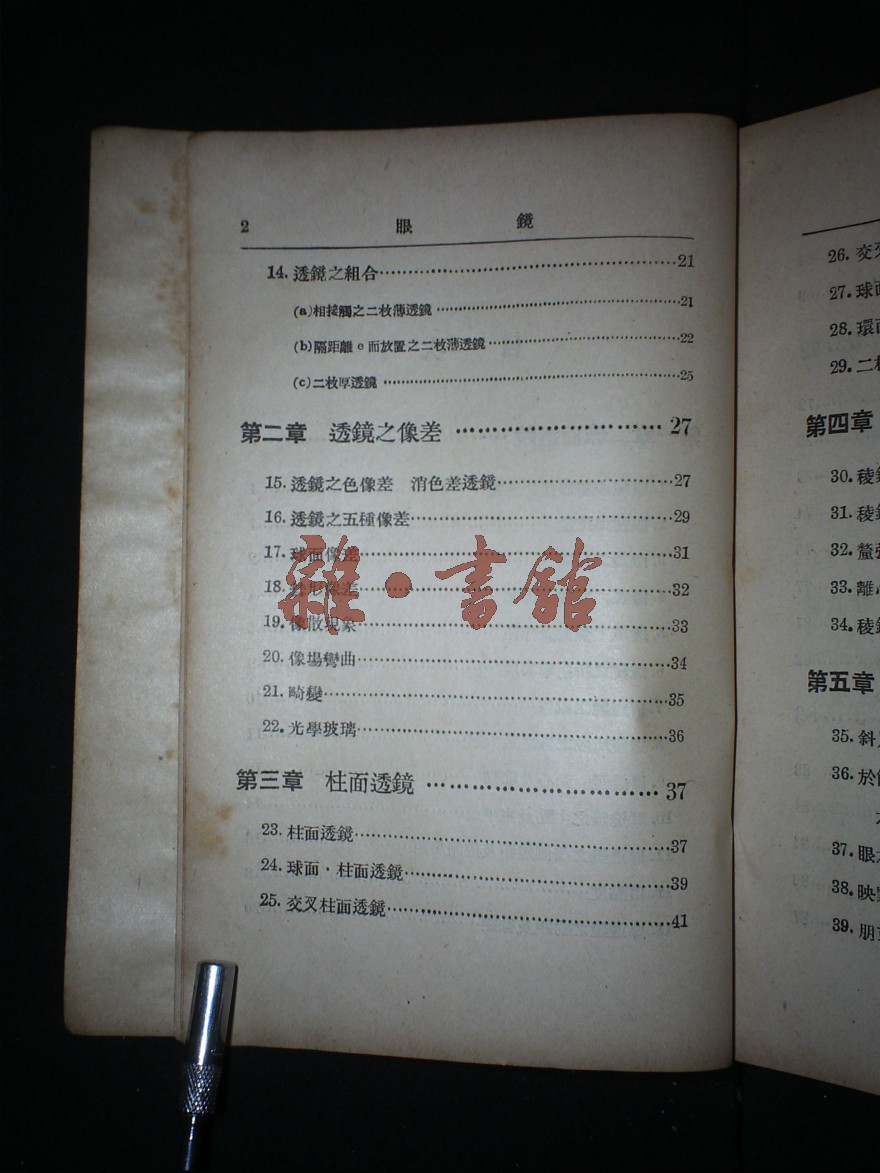 2 眼 鏡
14. 透鏡之組合…………………………………21
(a)相接觸之二枚薄透鏡…………………………21
(b)隔距離 e 而放置之二枚薄透鏡…………………22
(c)二枚厚透鏡…………………………………25
第二章 透鏡之像差……………………27
15. 透鏡之色像差 消色差透鏡…………………27
16. 透鏡之五種像差……………………………29
17. 球面像差……………………………………31
18. 形像差……………………………………32
19. 像散現象……………………………………33
20. 像場彎曲……………………………………34
21. 畸變…………………………………………35
22. 光學玻璃……………………………………36
第三章 柱面透鏡……………………37
23. 柱面透鏡……………………………………37
24. 球面·柱面透鏡………………………………39
25. 交叉柱面透鏡………………………………41
雜·書館
26. 交
27. 球
28. 環
29. 二
第四章
30. 稜
31. 稜
32. 釐
33. 離
34. 稜
第五章
35. 斜
36. 於
37. 眼
38. 映
39. 朋